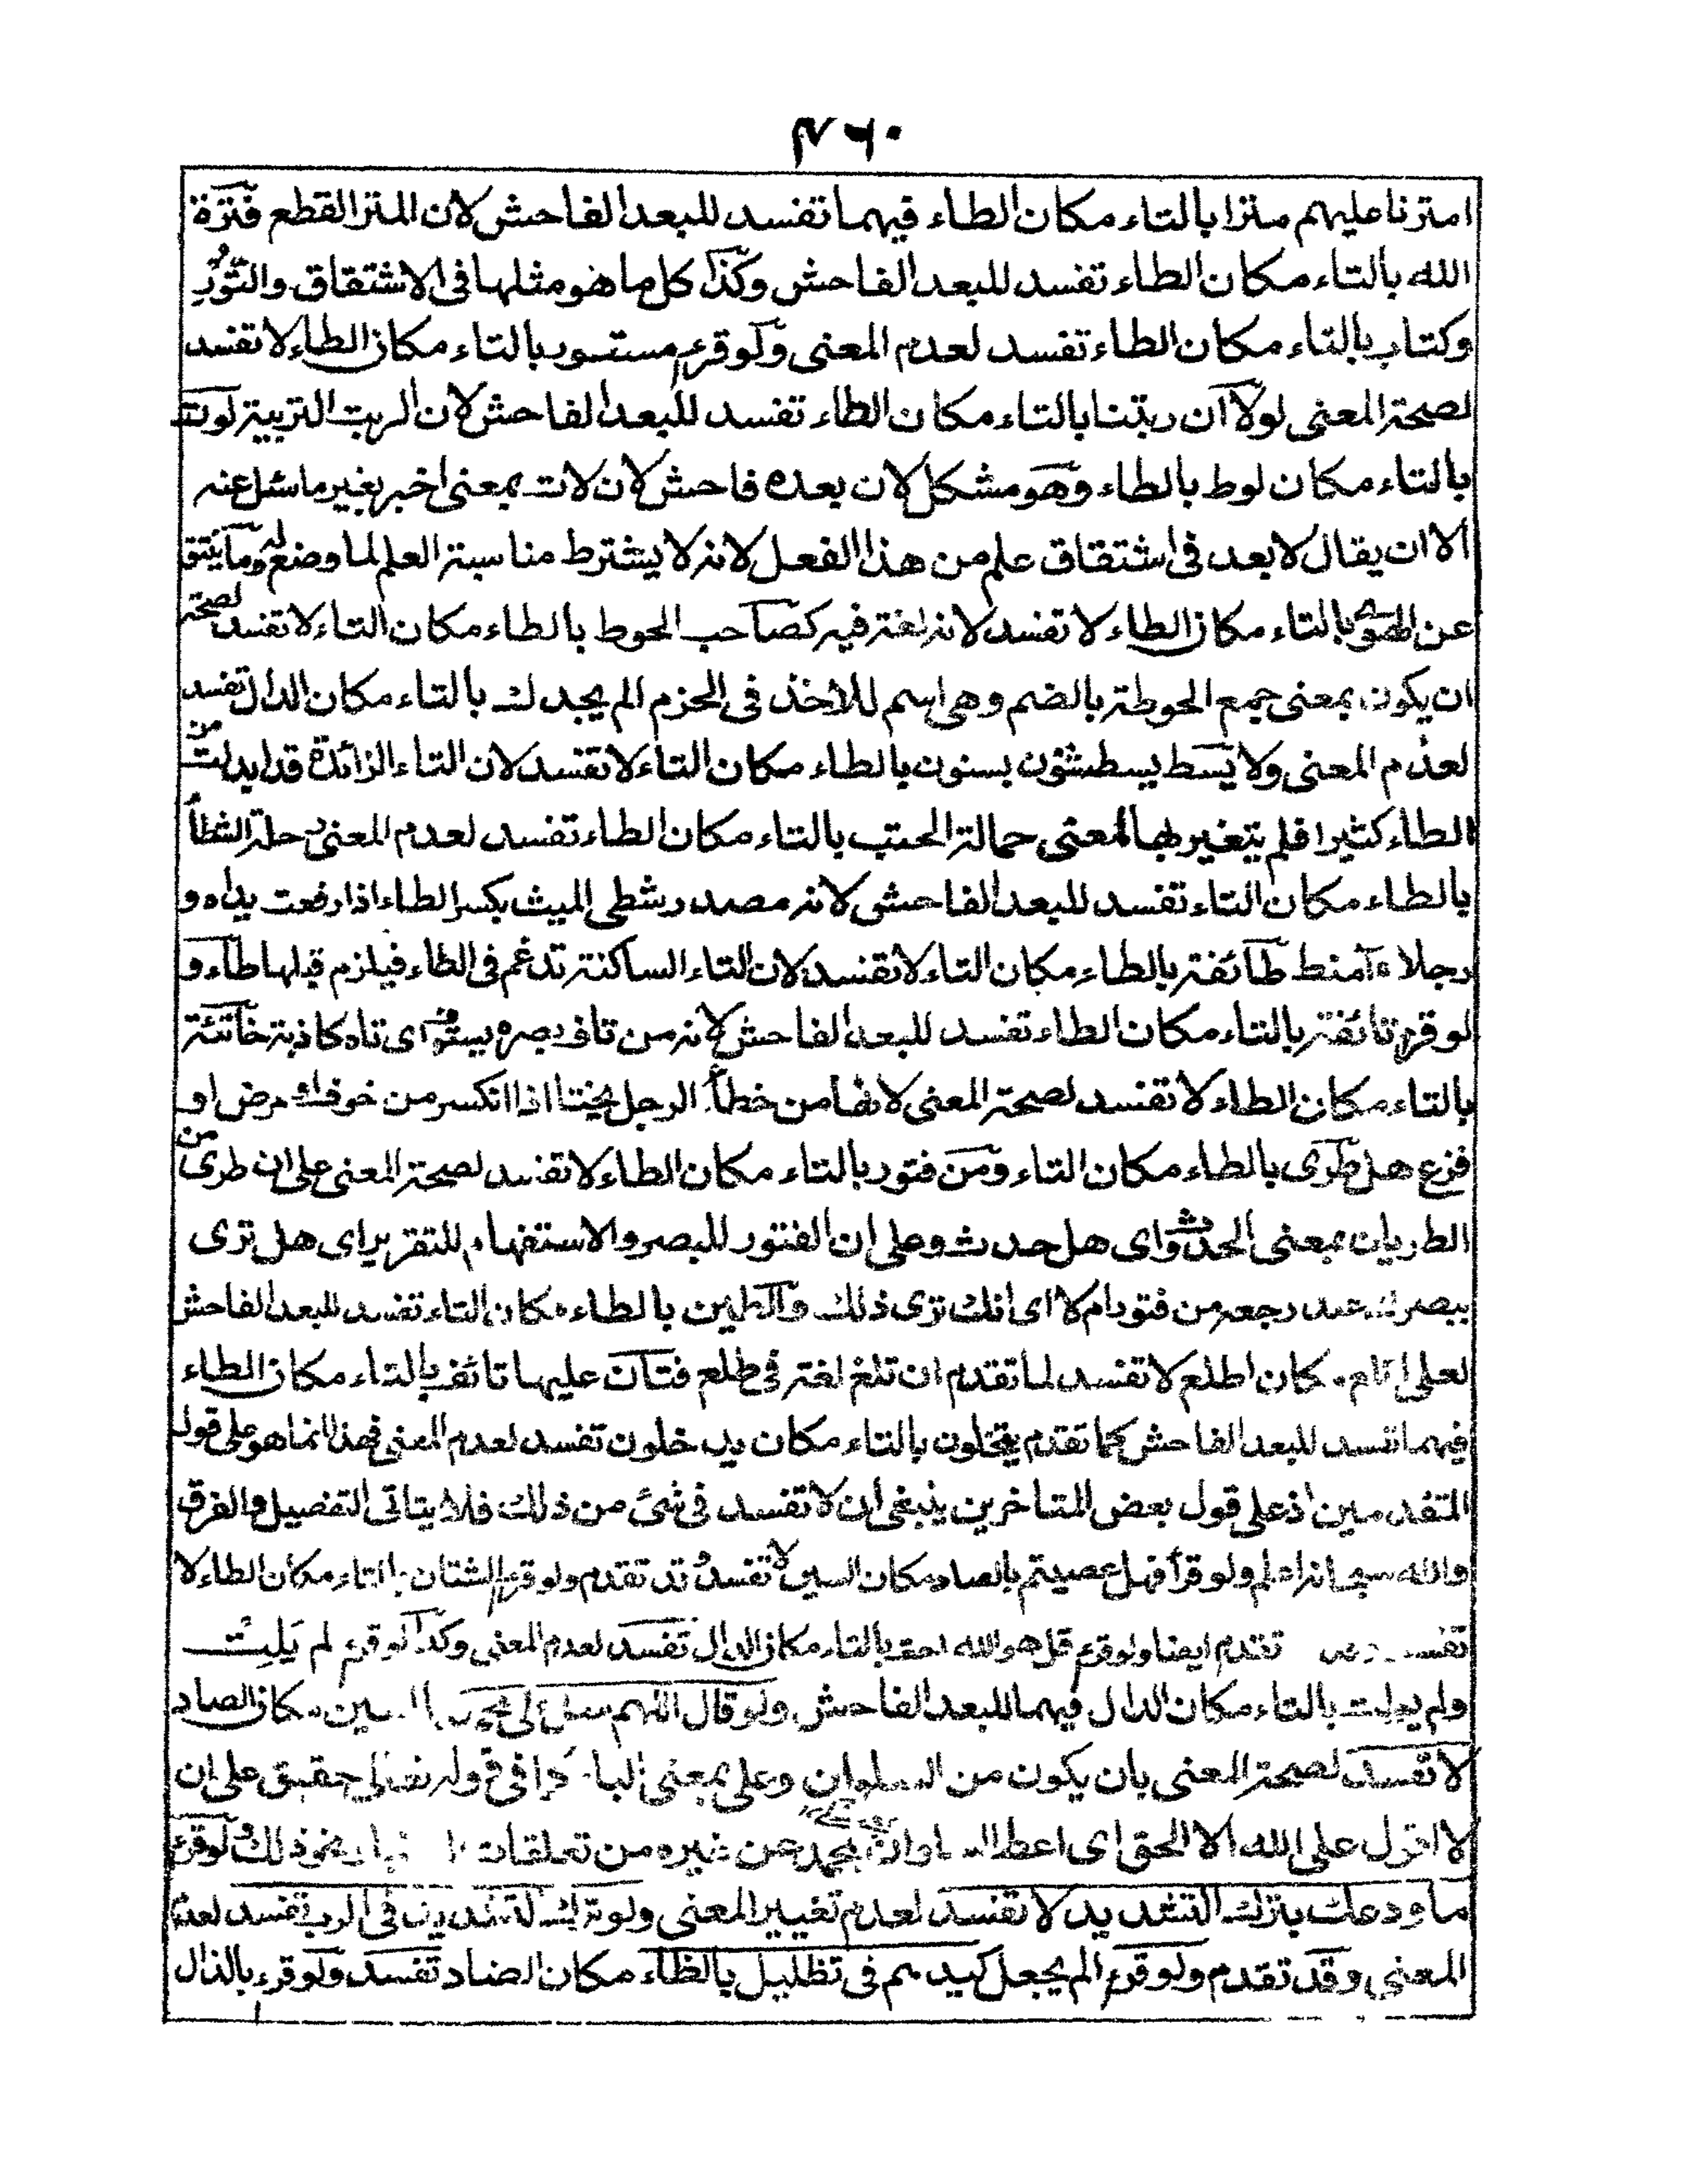 ٤٦٠
امترنا عليهم مترا بالتاء مكان الطاء فيهما تفسد للبعد الفاحش لان المتر القطع فترة
الله بالتاء مكان الطاء تفسد للبعد الفاحش وكذا كل ما هو مثلها فى الاشتقاق والتور
وكتاب بالتاء مكان الطاء تفسد لعدم المعنى ولو قرئ مستور بالتاء مكان الطاء لا تفسد
لصحة المعنى لولا ان ربتنا بالتاء مكان الطاء تفسد للبعد الفاحش لان الربت التربية لوت
بالتاء مكان لوط بالطاء وهو مشكل لان بعده فاحش لان لات بمعنى اخبر بغير ما سئل عنه
الا ان يقال لا بعد فى اشتقاق علم من هذا الفعل لانه لا يشترط مناسبة العلم لما وضع له وما ينتق
عن الهوى بالتاء مكان الطاء لا تفسد لانه لغة فيه كصاحب الحوط بالطاء مكان التاء لا تفسد لصحة
ان يكون بمعنى جمع الحوطة بالضم وهى اسم للاخذ فى الحزم الم يجدك بالتاء مكان الدال تفسد
لعدم المعنى ولا يسط يسطثنون بسنون بالطاء مكان التاء لا تفسد لان التاء الزائدة قد ابدلت من
الطاء كثيرا فلم يتغير بها المعنى حمالة الحتب بالتاء مكان الطاء تفسد لعدم المعنى رحلة الشطأ
بالطاء مكان التاء تفسد للبعد الفاحش لانه مصدر شطى الميت بكسر الطاء اذا رفعت يداه و
رجلاه آمنط طائفة بالطاء مكان التاء لا تفسد لان التاء الساكنة تدغم فى الطاء فيلزم قبلها طاء و
لو قرئ تائفة بالتاء مكان الطاء تفسد للبعد الفاحش لانه من تاف بصره يتوف اى تاه كاذبة خاتئة
بالتاء مكان الطاء لا تفسد لصحة المعنى لانها من ختأ الرجل يختا اذا انكسر من خوف او مرض او
فزع هل طرى بالطاء مكان التاء ومن فتور بالتاء مكان الطاء لا تفسد لصحة المعنى على ان طرى من
الطريان بمعنى الحدوث اى هل حدث وعلى ان الفتور للبصر والاستفهام للتقرير اى هل ترى
ببصرك عند رجعه من فتور ام لا اى انك ترى ذلك والطين بالطاء مكان التاء تفسد للبعد الفاحش
لعلى اتلع مكان اطلع لا تفسد لما تقدم ان تلع لغة فى طلع فتان عليها تائف بالتاء مكان الطاء
فيهما تفسد للبعد الفاحش كما تقدم يتخلون بالتاء مكان يدخلون تفسد لعدم المعنى فهذا انما هو على قول
المتقدمين اذ على قول بعض المتاخرين ينبغى ان لا تفسد فى شئ من ذلك فلا يتاتى التفصيل والفرق
والله سبحانه اعلم ولو قرأ فهل عصيتم بالصاد مكان السين لا تفسد وقد تقدم ولو قرئ الشتان بالتاء مكان الطاء لا
تفسد وقد تقدم ايضا ولو قرئ قل هو الله احت بالتاء مكان الدال تفسد لعدم المعنى وكذا لو قرئ لم يلت
ولم يولت بالتاء مكان الدال فيهما للبعد الفاحش ولو قال اللهم سل على محمد بالسين مكان الصاد
لا تفسد لصحة المعنى بان يكون من السلوان وعلى بمعنى الباء كما فى قوله تعالى حقيق على ان
لا اقول على الله الا الحق اى اعط السلوان بمحمد عن غيره من تعلقات ونحو ذلك ولو قرئ
ما ودعك بترك التشديد لا تفسد لعدم تغيير المعنى ولو ترك التشديد فى الرب تفسد لعدم
المعنى وقد تقدم ولو قرئ الم يجعل كيدهم فى تظليل بالظاء مكان الضاد تفسد ولو قرء بالذال